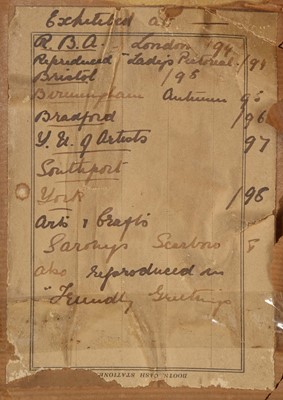 Exhibited at —
R.B.A. — London /94
Reproduced "Lady's Pictorial" /94
Bristol /95
Birmingham Autumn 95
Bradford /96
Y. U. of Artists 97
Southport
York /98
Arts & Crafts
Saronys Scarboro
also reproduced in
"Friendly Greetings
BOOTS CASH STATIONE